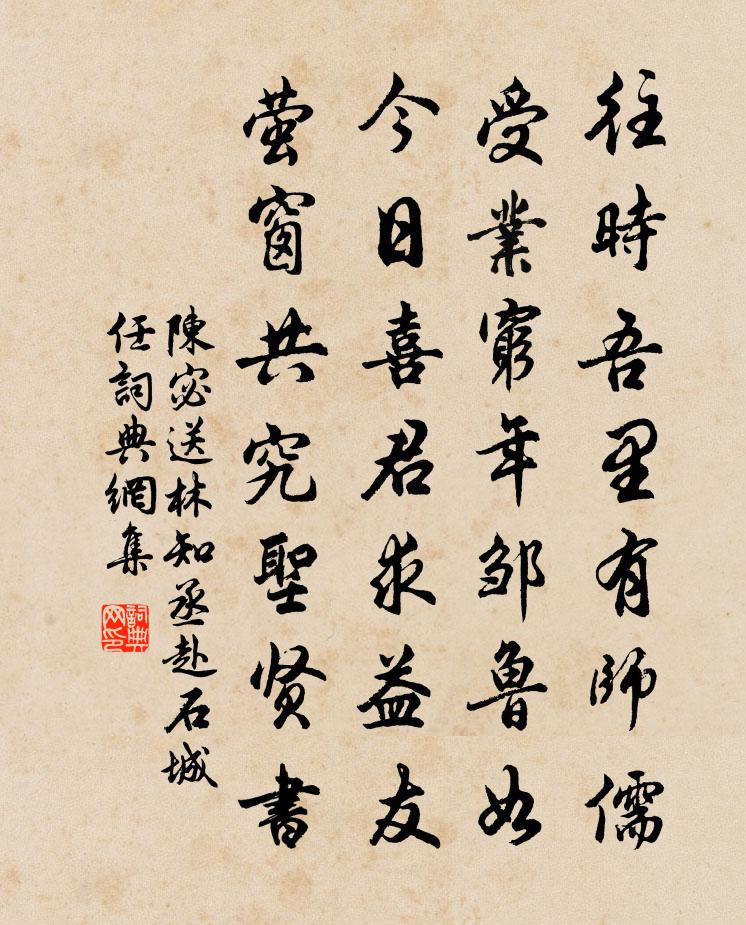 往時吾里有師儒
受業窮年邹魯如
今日喜君求益友
萤窗共究聖贤書
陳宓送林知丞赴石城
任詞典網集
詞典
网印